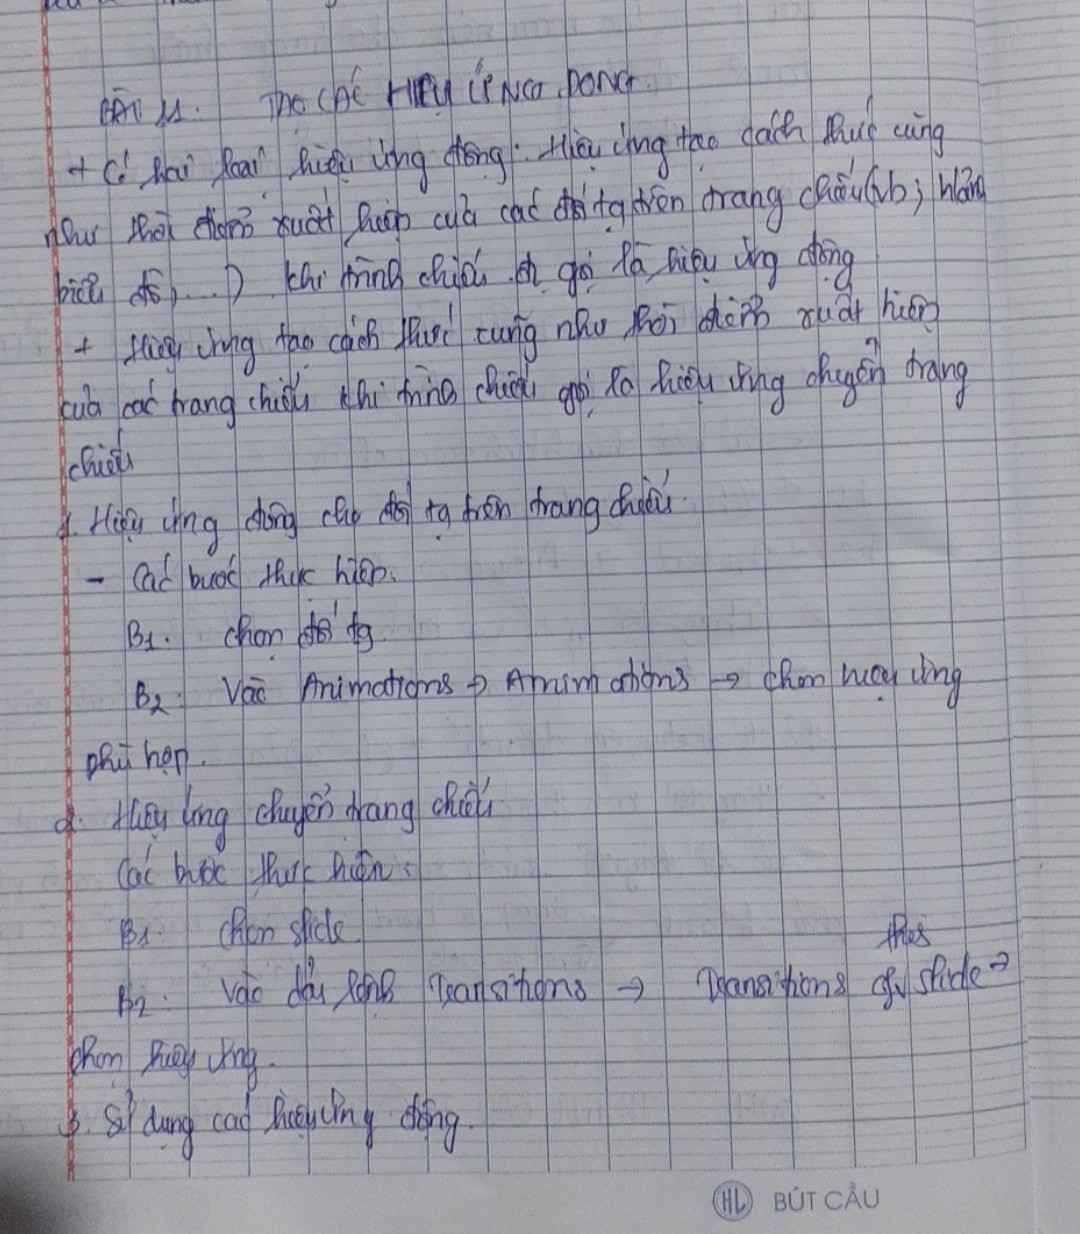 BÀI 11. TẠO CÁC HIỆU ỨNG ĐỘNG
+ Có hai loại hiệu ứng động: Hiệu ứng tạo cách thức cũng
như thời điểm xuất hiện của các đối tg trên trang chiếu (vb, hình
biểu đồ, ...) khi trình chiếu gọi là hiệu ứng động
+ Hiệu ứng tạo cách thức cũng như thời điểm xuất hiện
của các trang chiếu khi trình chiếu gọi là hiệu ứng chuyển trang
chiếu
1. Hiệu ứng động cho đối tg trên trang chiếu.
- Các bước thực hiện.
B1. chọn đối tg
B2. Vào Animations → Animations → chọn hiệu ứng
phù hợp.
2. Hiệu ứng chuyển trang chiếu
Các bước thực hiện:
B1. chọn slide
B2. vào dải lệnh Transitions → Transitions to this slide →
chọn hiệu ứng.
3. Sử dụng các hiệu ứng động.
HL BÚT CẨU